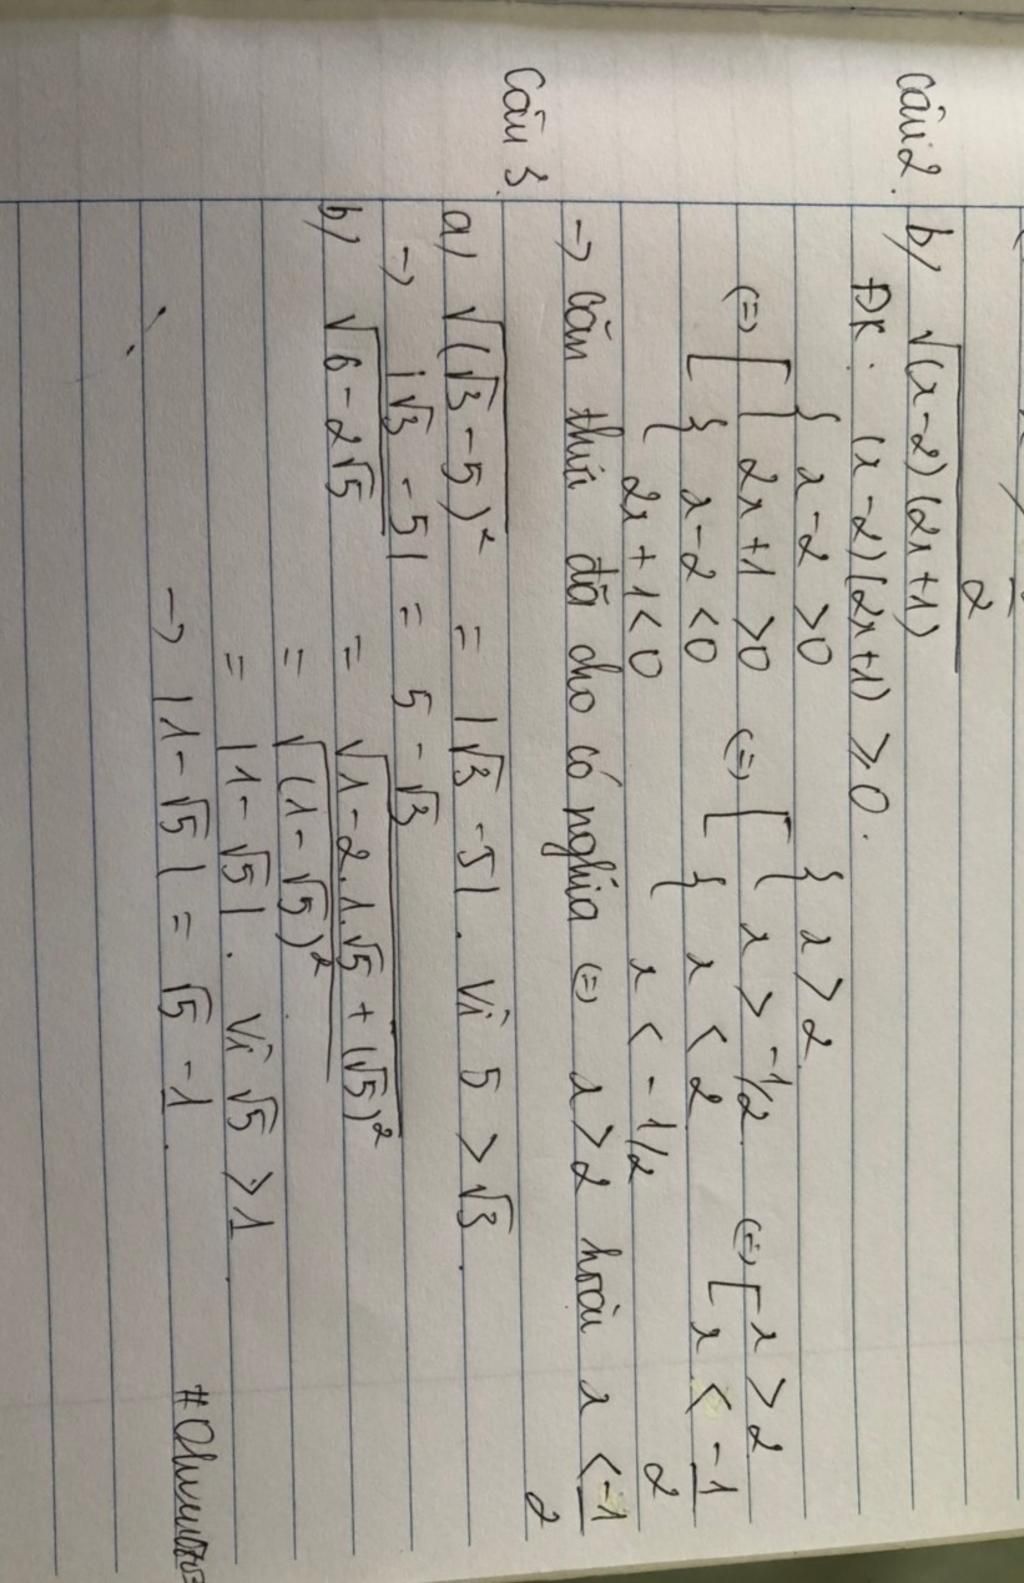 2
Câu 2. b) √(x-2)(2x+1)
ĐK: (x-2)(2x+1) ≥ 0.
{ x-2 >0 { x > 2
(=) [ { 2x+1 >0 (=) [ { x > -1/2 (=) [ x > 2
{ x-2 <0 { x < 2 [ x < -1/2
{ 2x+1<0 x < -1/2
-> căn thức đã cho có nghĩa (=) x>2 hoặc x < -1/2
Câu 3.
a) √(√3-5)² = |√3-5|. Vì 5 > √3.
-> |√3-5| = 5-√3
b) √6-2√5 = √1-2.1.√5+(√5)²
= √(1-√5)²
= |1-√5|. Vì √5 >1.
-> |1-√5| = √5-1.